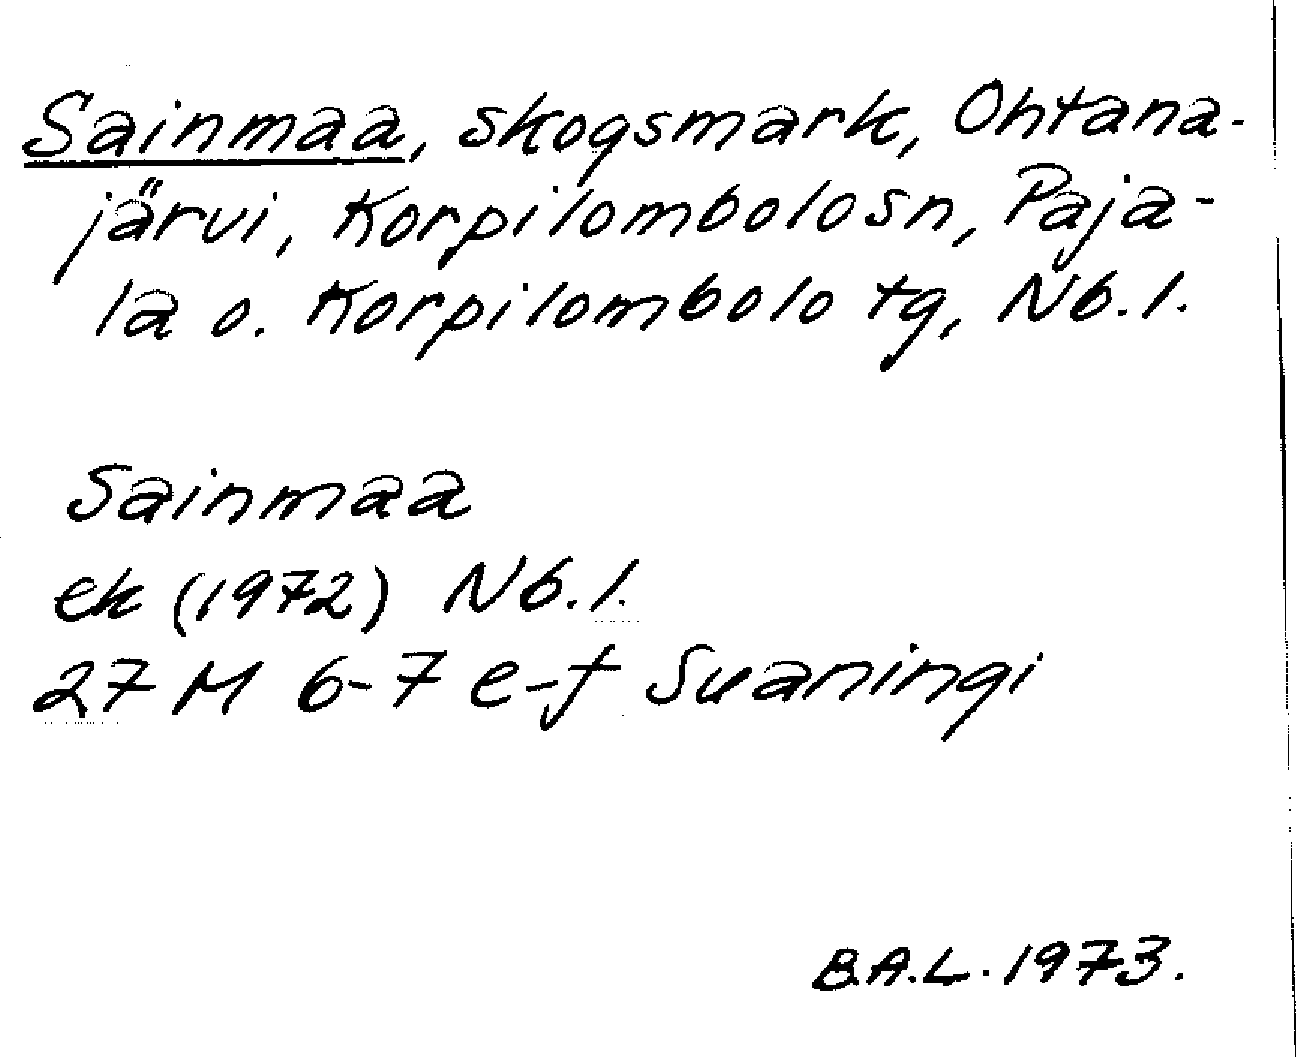 Sainmaa, skogsmark, Ohtana-
järvi, Korpilombolosn, Paja-
la o. Korpilombolo tg, Nb.l.
Sainmaa
ek (1972) Nb.l.
27 M 6-7 e-f Suaningi
B.A.L. 1973.